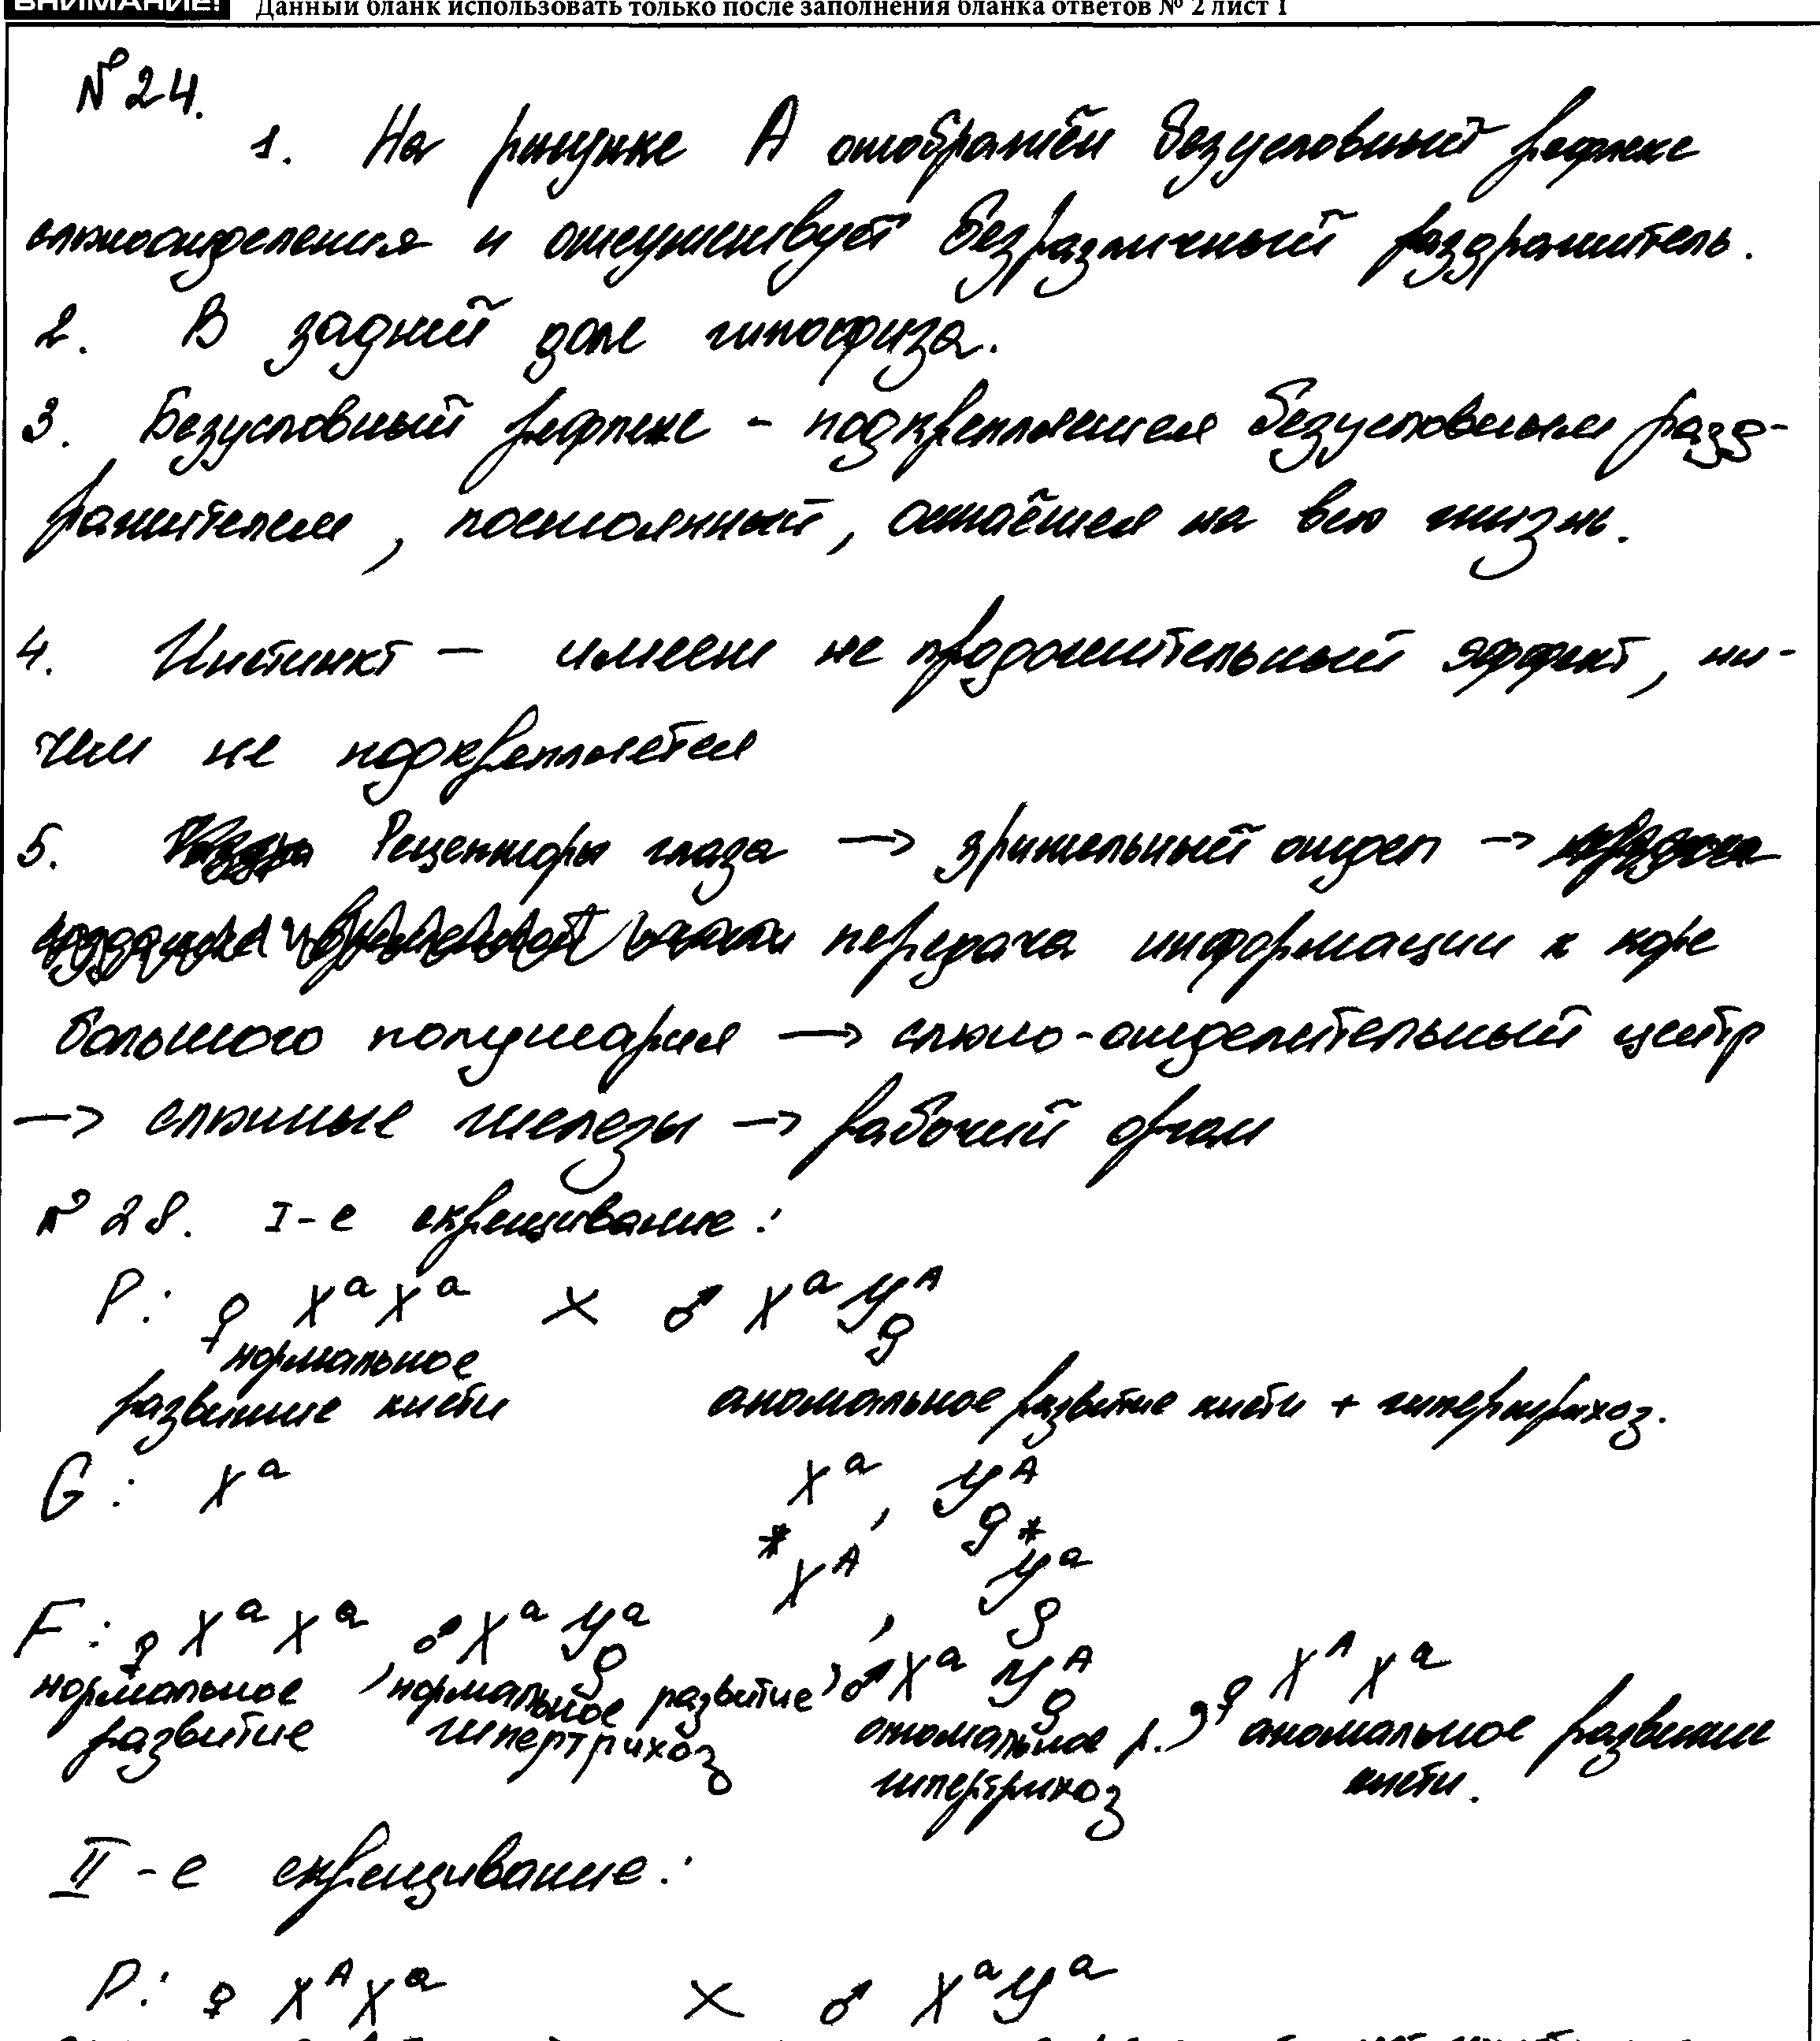 ВНИМАНИЕ! Данный бланк использовать только после заполнения бланка ответов № 2 лист 1
№ 24.
1. На рисунке А отображён безусловный рефлекс
слюноотделения и отсутствует безразличный раздражитель.
2. В задний доле гипофиза.
3. Безусловный рефлекс - подкрепляется безусловным разд-
ражителем, постоянный, остаётся на всю жизнь.
4. Инстинкт — имеет не продолжительный эффект, ни-
чем не подкрепляется
5. Рецепторы глаза → зрительный отдел →
передача информации к коре
большого полушария → слюно-отделительный центр
→ слюнные железы → рабочий орган
№ 28. I-е скрещивание:
P: ♀ XᵃXᵃ × ♂ XᵃYᴬg
нормальное
развитие кисти аномальное развитие кисти + гипертрихоз.
G: Xᵃ Xᵃ, Yᴬg
* Xᴬ, * Yᵃg
F: ♀ XᵃXᵃ, ♂ XᵃYᵃg, ♂ XᵃYᴬg, ♀ XᴬXᵃ
нормальное нормальное развитие аномальное р. аномальное развитие
развитие гипертрихоз гипертрихоз кисти.
II-е скрещивание:
P: ♀ XᴬXᵃ × ♂ XᵃYᵃ